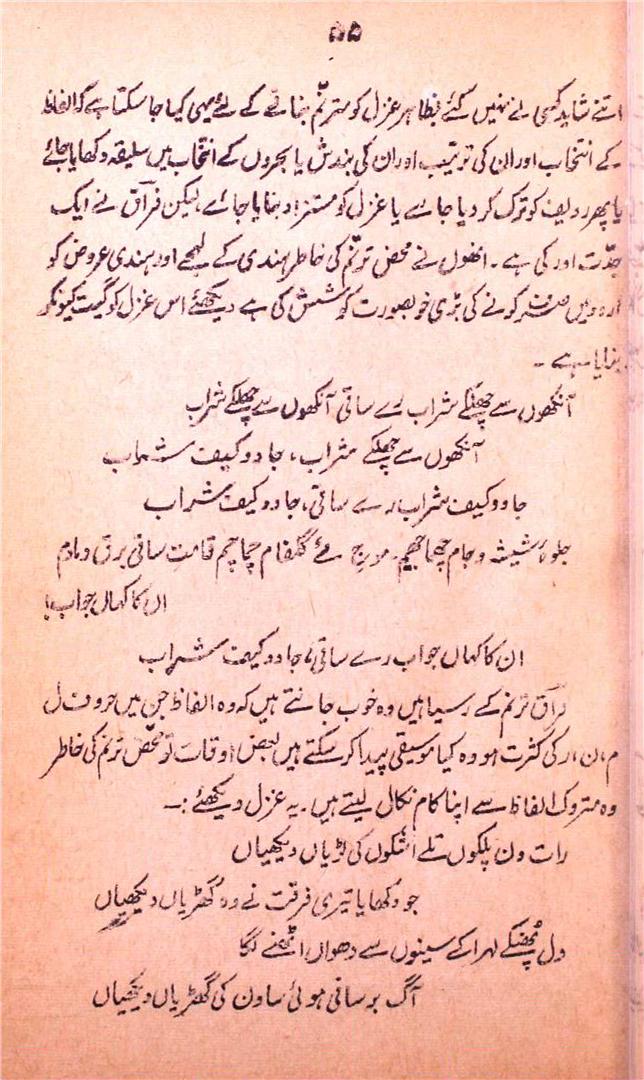 ۵۵
اتنے شاید کسی نے نہیں کئے بظاہر غزل کو مترنّم بنانے کے لئے یہی کیا جا سکتا ہے کہ الفاظ
کے انتخاب اور ان کی ترتیب اور ان کی بندش یا بحروں کے انتخاب میں سلیقہ دکھایا جائے
یا پھر ردیف کو ترک کر دیا جائے یا غزل کو مستزاد بنایا جائے لیکن فراق نے ایک
جدّت اور کی ہے ۔ انھوں نے محض ترنّم کی خاطر ہندی کے لہجے اور ہندی عروض کو
اردو میں صرف کرنے کی بڑی خوبصورت کوشش کی ہے دیکھئے اس غزل کو گیت کیونکر
بنایا ہے ۔
آنکھوں سے چھلکے شراب رے ساقی آنکھوں سے چھلکے شراب
آنکھوں سے چھلکے شراب ، جادو کیف شراب
جادو کیف شراب رے ساقی ، جادو کیف شراب
جلوۂ شیشہ و جام چھما چھم ۔ موج مئے گلفام چما چم قامت ساقی برق دمادم
ان کا کہاں جواب !
ان کا کہاں جواب رے ساقی ، جادو کیف شراب
فراق ترنم کے رسیا ہیں وہ خوب جانتے ہیں کہ وہ الفاظ جن میں حروف ل
م ، ن ، ر کی کثرت ہو وہ کیا موسیقی پیدا کر سکتے ہیں بعض اوقات تو محض ترنم کی خاطر
وہ متروک الفاظ سے اپنا کام نکال لیتے ہیں ۔ یہ غزل دیکھئے :۔
رات دن پلکوں تلے اشکوں کی لڑیاں دیکھیاں
جو دکھایا تیری فرقت نے وہ گھڑیاں دیکھیاں
دل پھنکے لہرا کے سینوں سے دھواں اٹھنے لگا
آگ برساتی ہوئی ساون کی گھڑیاں دیکھیاں